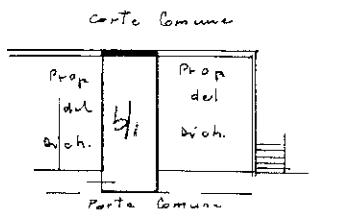 corte Comune
Prop
del
Dich.
Prop
del
Dich.
Corte Comune